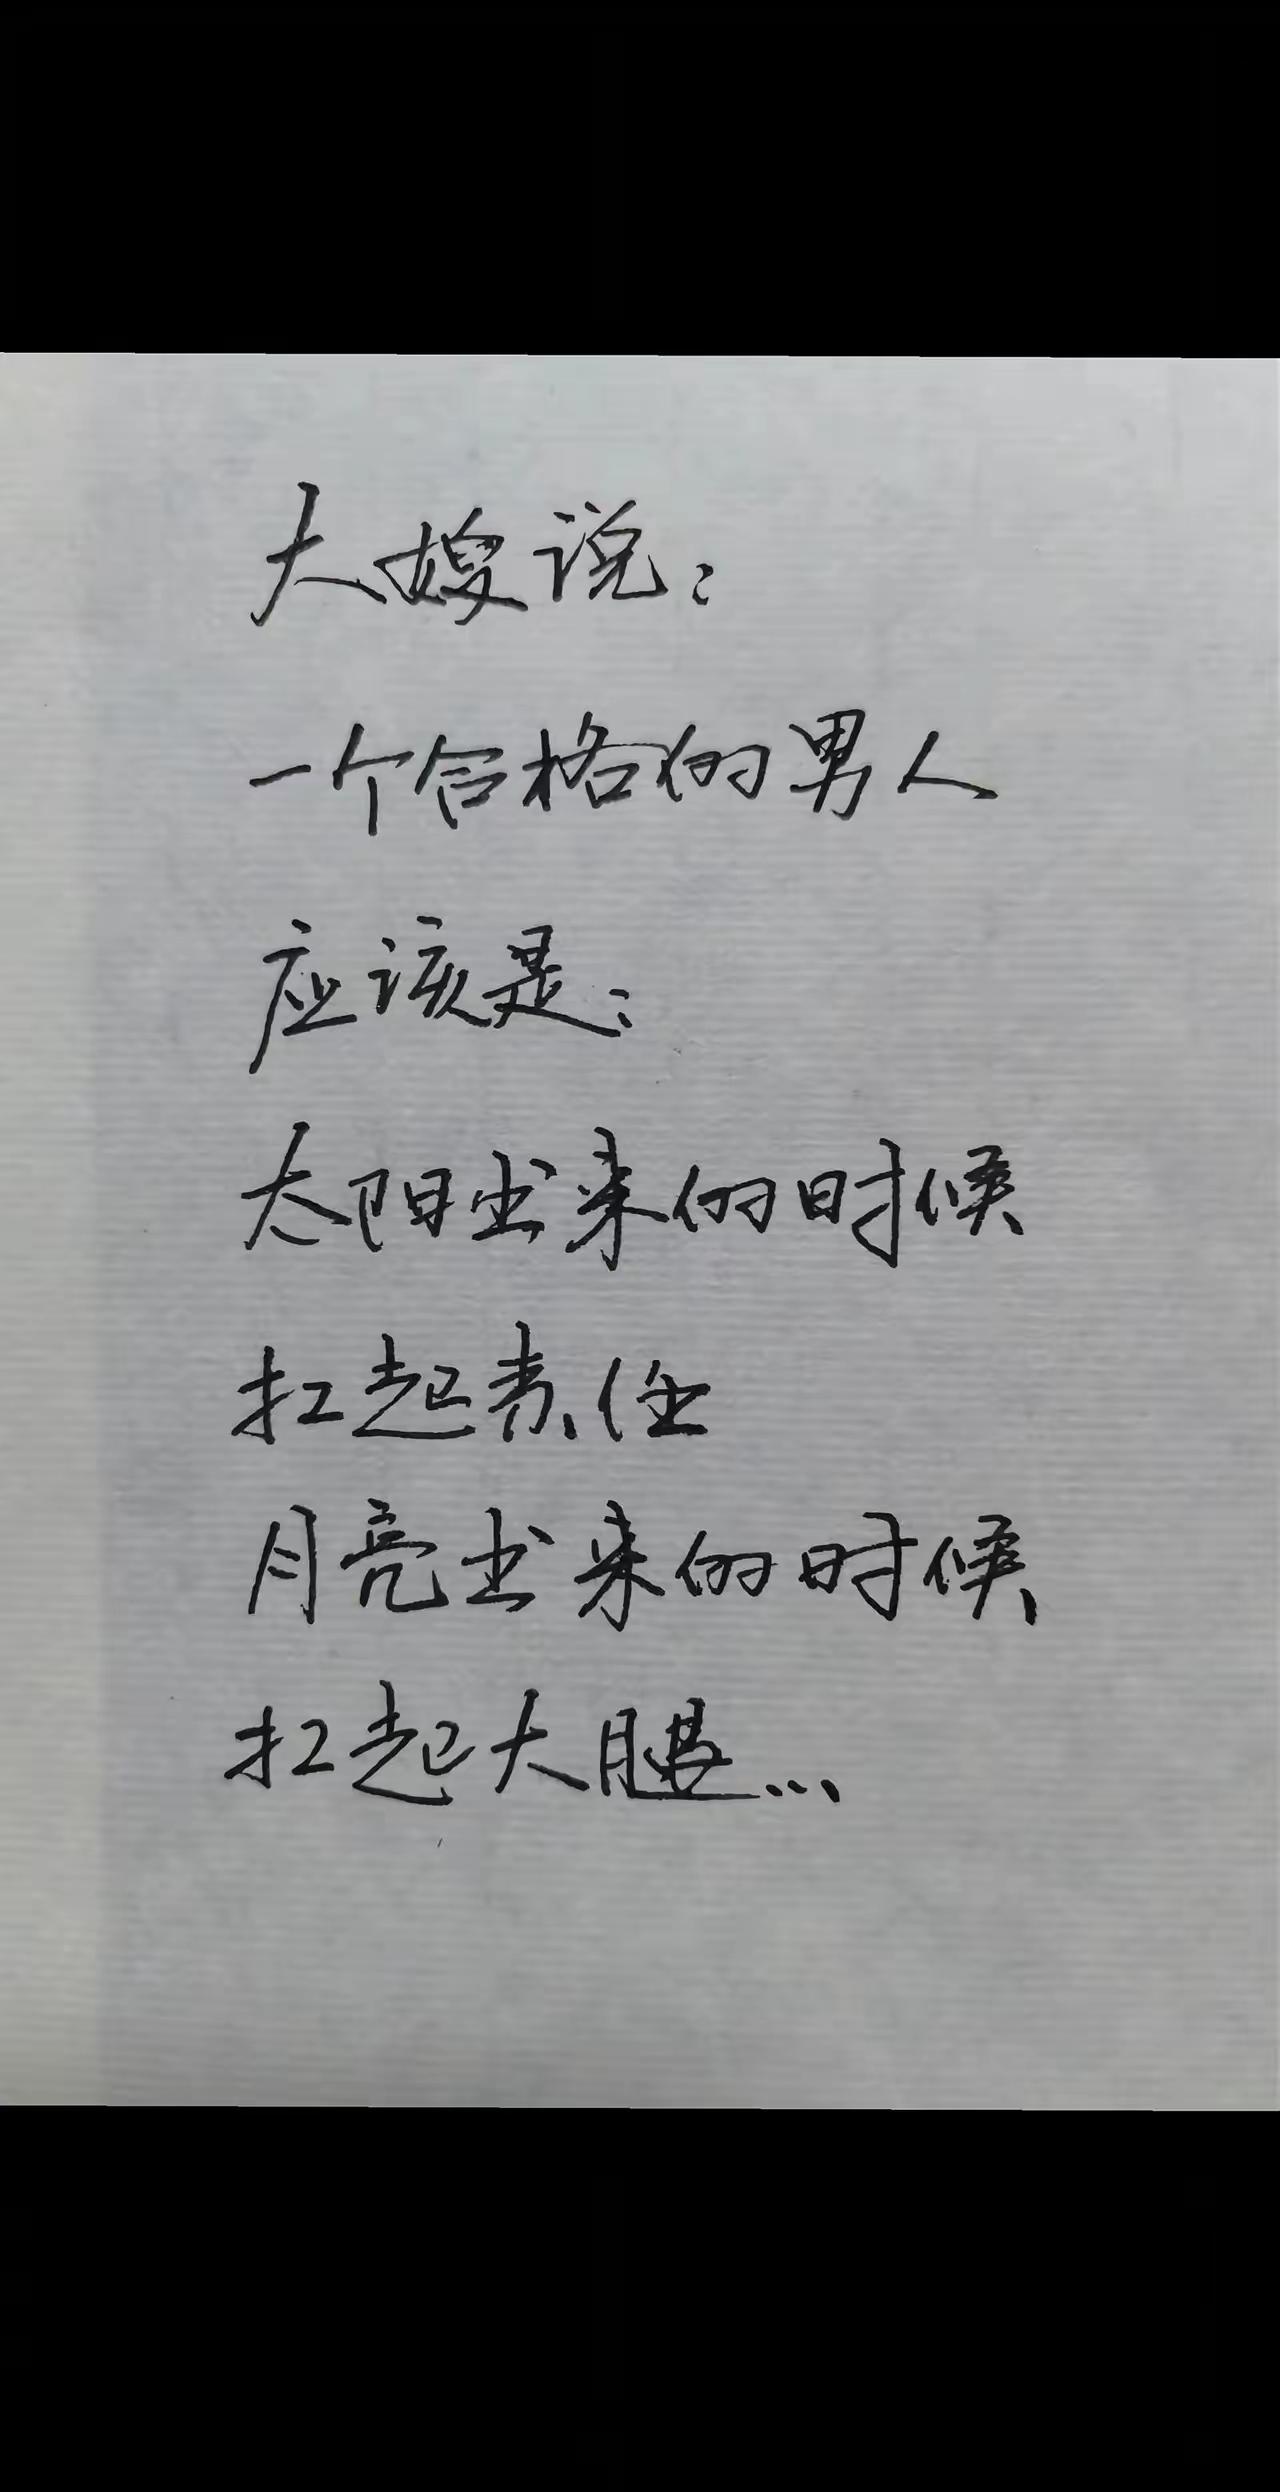 大嫂说：
一个合格的男人
应该是：
太阳出来的时候
扛起责任
月亮出来的时候
扛起大腿…